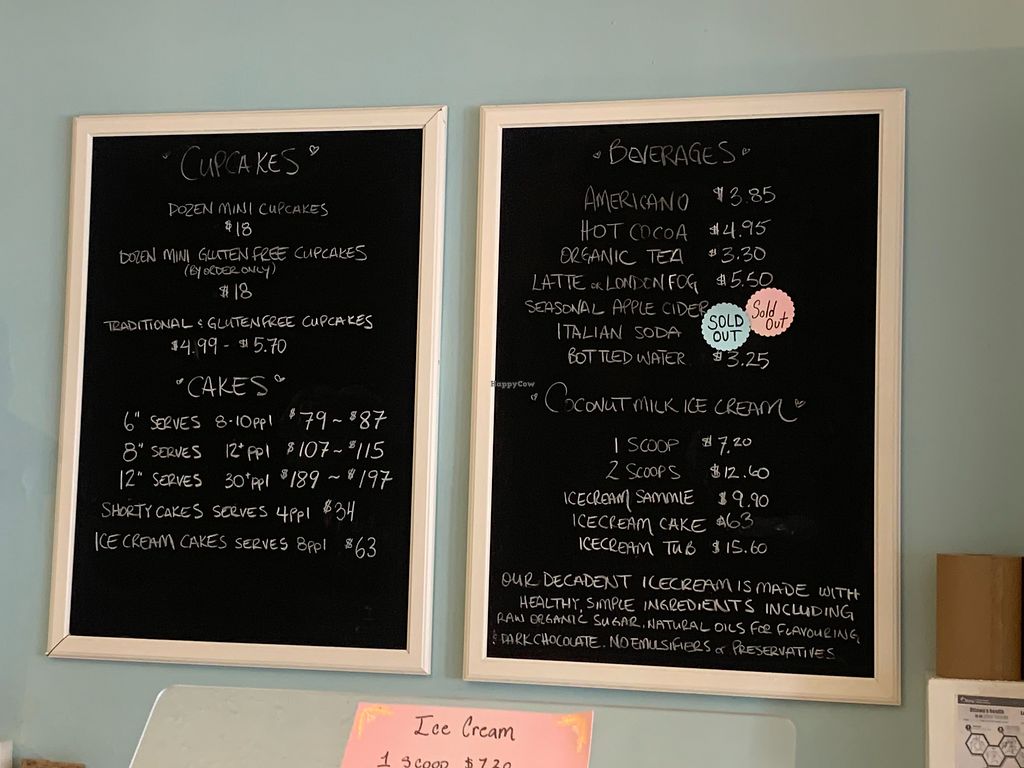 CUPCAKES
DOZEN MINI CUPCAKES
$18
DOZEN MINI GLUTEN FREE CUPCAKES
(BY ORDER ONLY)
$18
TRADITIONAL & GLUTEN FREE CUPCAKES
$4.99 - $5.70
CAKES
6" SERVES 8-10ppl $79 ~ $87
8" SERVES 12+ppl $107 ~ $115
12" SERVES 30+ppl $189 ~ $197
SHORTY CAKES SERVES 4ppl $34
ICE CREAM CAKES SERVES 8ppl $63
BEVERAGES
AMERICANO $3.85
HOT COCOA $4.95
ORGANIC TEA $3.30
LATTE OR LONDON FOG $5.50
SEASONAL APPLE CIDER Sold Out
ITALIAN SODA SOLD OUT
BOTTLED WATER $3.25
HappyCow
COCONUT MILK ICE CREAM
1 SCOOP $7.20
2 SCOOPS $12.60
ICECREAM SAMMIE $9.90
ICECREAM CAKE $63
ICECREAM TUB $15.60
OUR DECADENT ICECREAM IS MADE WITH
HEALTHY, SIMPLE INGREDIENTS INCLUDING
RAW ORGANIC SUGAR, NATURAL OILS FOR FLAVOURING,
& DARK CHOCOLATE. NO EMULSIFIERS or PRESERVATIVES
Ice Cream
1 Scoop $7.20
Ottawa's health